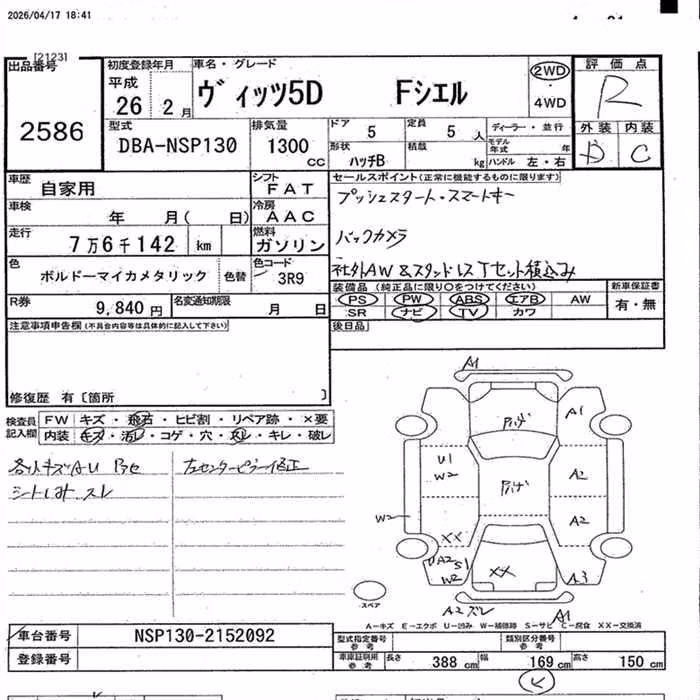 2026/04/17 18:41
[2123]
出品番号
2586
初度登録年月
平成
26 2月
車名・グレード
ヴィッツ5D Fシエル
2WD
・
4WD
評価点
R
外装 内装
D C
型式
DBA-NSP130
排気量
1300
cc
ドア 5
定員 5 人
ディーラー・並行
形状 ハッチB
積載 kg
モデル年式 年
ハンドル 左・右
車歴 自家用
シフト FAT
車検 年 月( 日)
冷房 AAC
走行 7万6千142 km
燃料 ガソリン
色 ボルドーマイカメタリック
色替
色コード 3R9
R券 9,840円
名変通知期限 月 日
セールスポイント(正常に機能するものに限ります)
プッシュスタート・スマートキー
バックカメラ
社外AW &スタッドレスTセット積込み
装備品(純正品に限り○をつけてください)
新車保証書
PS PW ABS エアB AW
SR ナビ TV カワ
有・無
後日品
注意事項申告欄(不具合内容等は具体的に記入して下さい)
修復歴 有〔箇所 〕
検査員記入欄
FW キズ・飛石・ヒビ割・リペア跡・×要
内装 キズ・汚レ・コゲ・穴・スレ・キレ・破レ
シートしみ、スレ
左センターピラー修正
A1
A1
U1
W2
A2
W2
A2
XX
UA2 S1
W2
XX
A3
スペア
A2 ズレ
A1
A-キズ E-エクボ U-凹み W-補修跡 S-サビ C-腐食 XX-交換済
車台番号 NSP130-2152092
登録番号
型式指定番号 参考
類別区分番号 参考
車庫証明用 参考
長さ 388 cm
幅 169 cm
高さ 150 cm